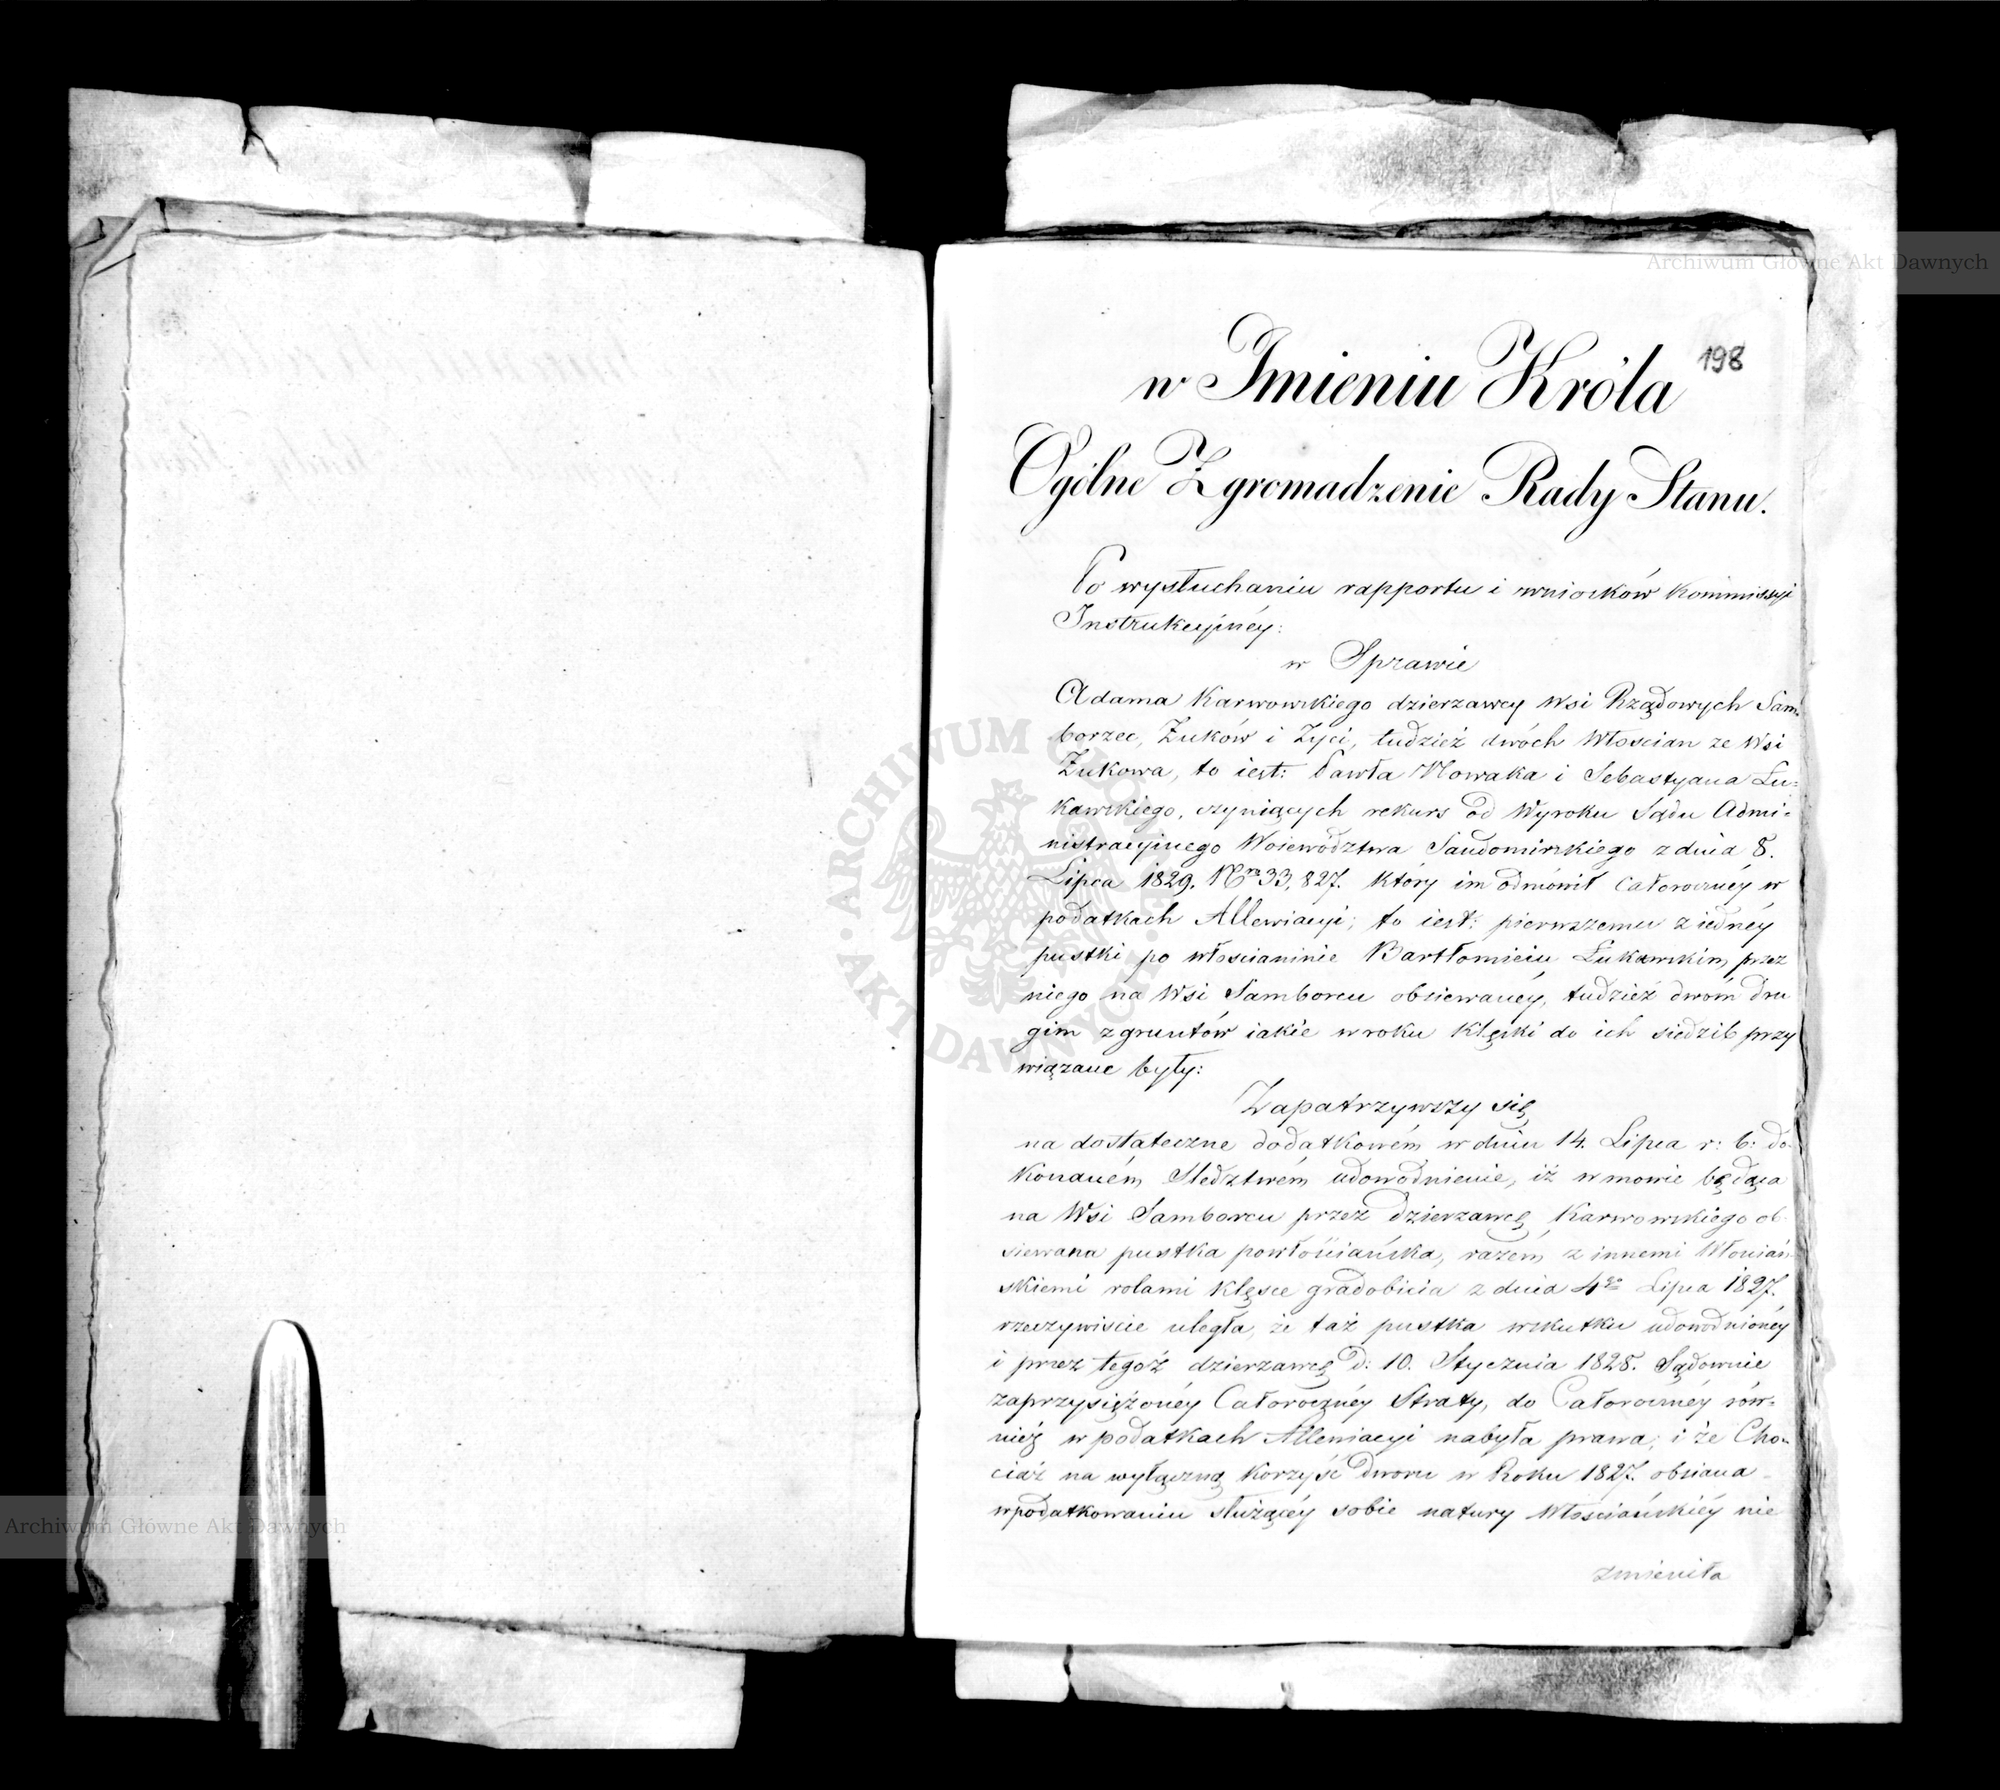 198
w Imieniu Króla
Ogólne Zgromadzenie Rady Stanu.
Po wysłuchaniu rapportu i wniosków Kommissyi
Instrukcyjnéy:
w Sprawie
Adama Karwowskiego dzierzawcy Wsi Rządowych Sam-
borzec, Żuków i Zyci, tudzież dwóch Włoscian ze Wsi
Żukowa, to iest: Pawła Nowaka i Sebastyana Łu-
kawskiego, czyniących rekurs od Wyroku Sądu Admi-
nistracyjnego Woiewództwa Sandomirskiego z dnia 8.
Lipca 1829. Nro 33,827. który im odmówił Całorocznéy w
podatkach Allewiacyi; to iest: pierwszemu z iednéy
pustki po włoscianinie Bartłomieiu Łukawskim przez
niego na Wsi Samborcu obsiewanéy, tudzież dwóm dru
gim z gruntów iakie w roku klęski do ich siedzib przy
wiązane były:
Zapatrzywszy się
na dostateczne dodatkowém w dniu 14. Lipca r: b: do-
konaném Sledztwém udowodnienie, iż w mowie będąca
na Wsi Samborcu przez dzierzawcę Karwowskiego ob-
siewana pustka powłościańska, razem z innemi Włoscian-
skiemi rolami klęsce gradobicia z dnia 4go Lipca 1827.
rzeczywiscie uległa, że taż pustka wskutku udowodnionéy
i przez tegoż dzierzawcę d: 10. Stycznia 1828. Sądownie
zaprzysiężonéy Całorocznéy Straty, do Całorocznéy rów-
nież w podatkach Allewiacyi nabyła prawa; i że Cho-
ciaż na wyłączną korzyść dworu w Roku 1827. obsiana
w podatkowaniu służącéy sobie natury Włosciańskiéy nie
zmieniła
Archiwum Główne Akt Dawnych
ARCHIWUM GŁÓWNE AKT DAWNYCH
Archiwum Główne Akt Dawnych